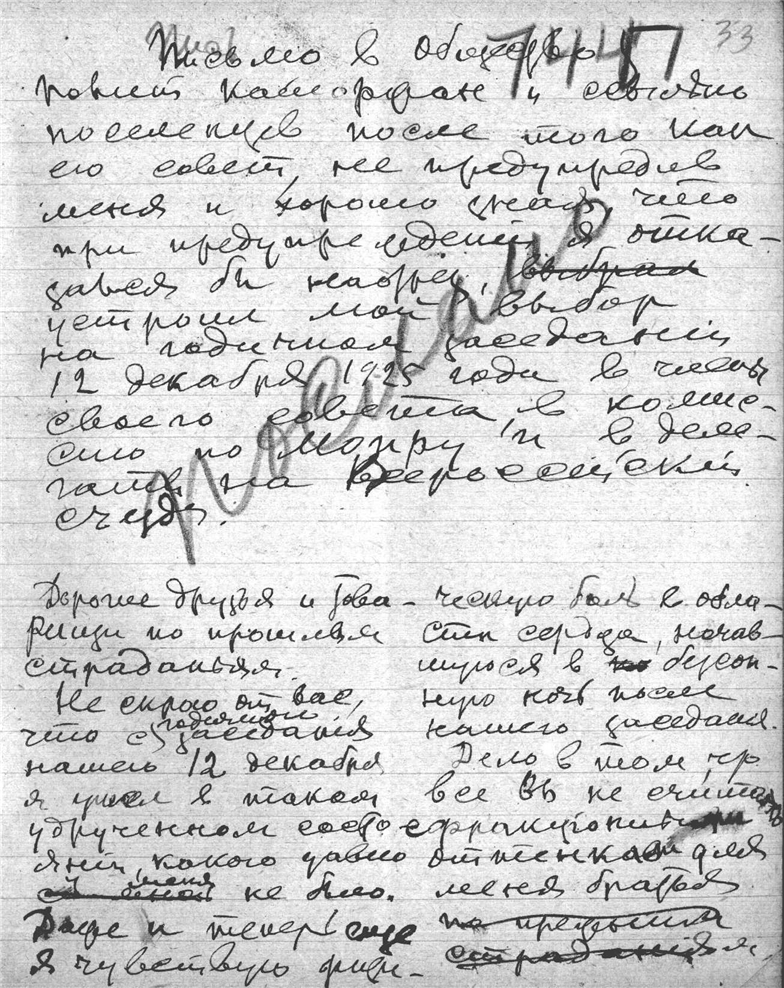 33
744
Письмо в общество
политкаторжан и ссыльно
поселенцев после того как
его совет, не предупредив
меня и хорошо зная, что
при предупреждении я отка-
зался бы наотрез,
устроил мой выбор
на годичном заседании
12 декабря 1925 года в члены
своего совета в комис-
сию по Мопру и в деле-
гаты на Всероссийский
съезд.
Послано
Дорогие друзья и Това-
рищи по прошлым
страданьям.
Не скрою от вас,
что с годичного заседания
нашего 12 декабря
я ушел в таком
удрученном состо-
янии, какого давно
у меня не было.
Даже и теперь еще
я чувствую физи-
ческую боль в обла-
сти сердца, начав-
шуюся в бессон-
ную ночь после
нашего заседания.
Дело в том, что
все вы не считая
с фракционными
оттенками для
меня братья
по прежним
страданиям